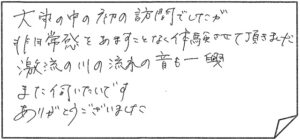 大雨の中の初の訪問でしたが
非日常感をあますことなく体験させて頂きました
激流の川の流れの音も一興
また伺いたいです
ありがとうございました